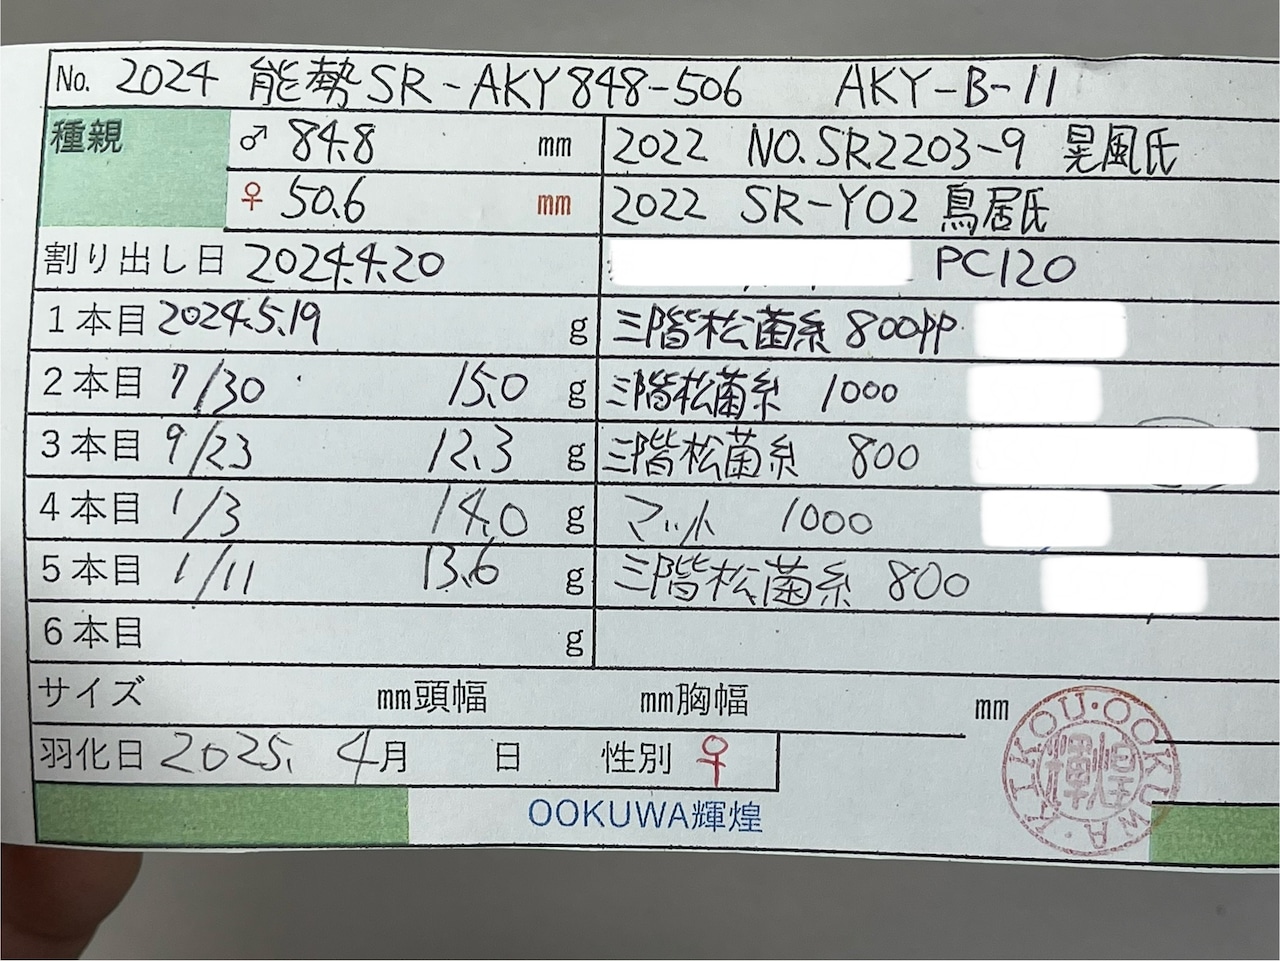 No. 2024 能勢SR-AKY848-506 AKY-B-11
種親 ♂ 84.8 mm 2022 NO.SR2203-9 晃風氏
♀ 50.6 mm 2022 SR-Y02 鳥居氏
割り出し日 2024.4.20 PC120
1本目 2024.5.19 g 三階松菌糸 800PP
2本目 7/30 15.0 g 三階松菌糸 1000
3本目 9/23 12.3 g 三階松菌糸 800
4本目 1/3 14.0 g マット 1000
5本目 1/11 13.6 g 三階松菌糸 800
6本目 g
サイズ mm頭幅 mm胸幅 mm
羽化日 2025. 4月 日 性別 ♀
OOKUWA輝煌
KIKOU・OOKUWA・輝煌